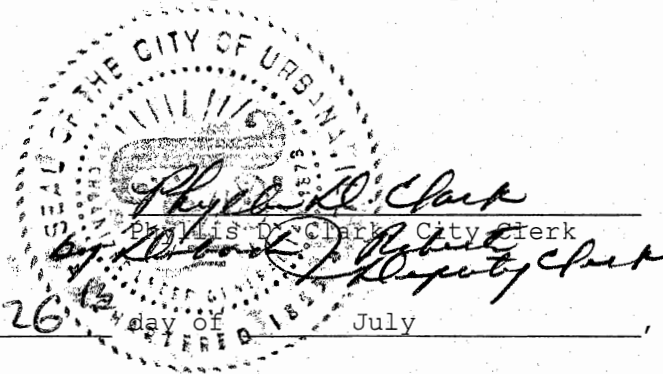 SEAL OF THE CITY OF URBANA
1873
Phyllis D. Clark
Phyllis D. Clark, City Clerk
by Deborah J. Roberts
Deputy Clerk
CHARTERED 185
26th day of July ,